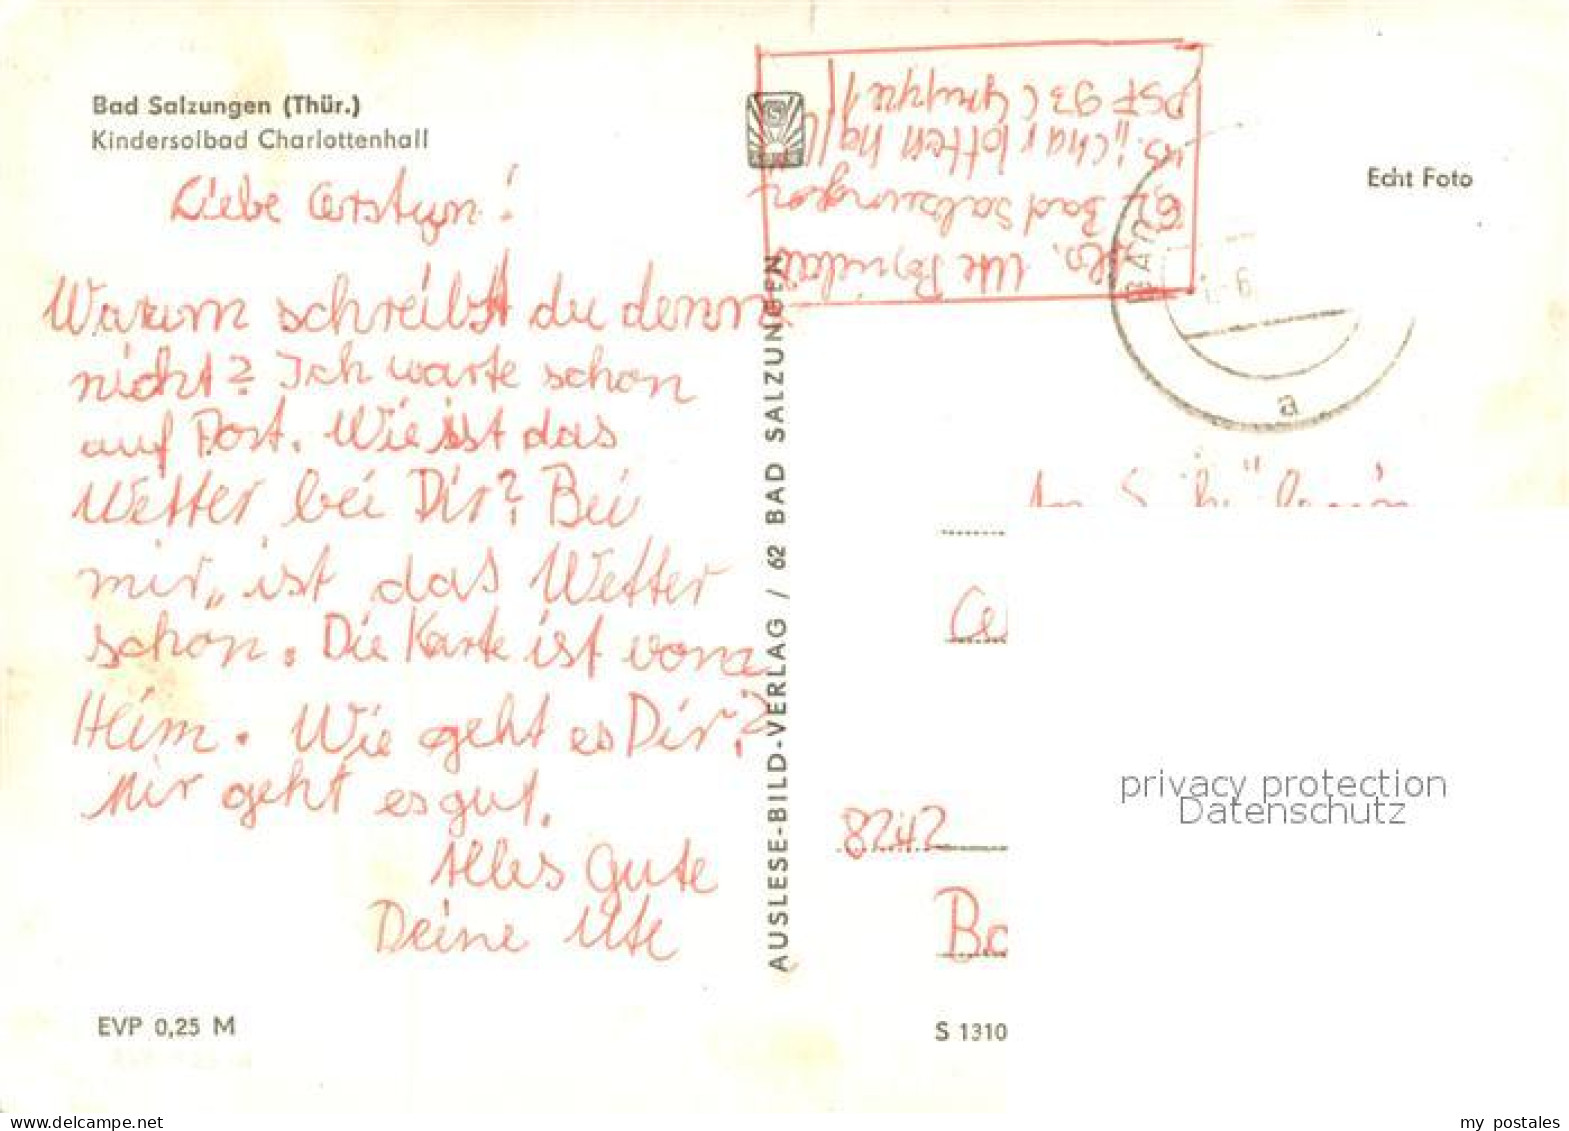 Bad Salzungen (Thür.)
Kindersolbad Charlottenhall
Liebe
Warum schreibst du denn
nicht? Ich warte schon
auf Post. Wie ist das
Wetter bei Dir? Bei
mir, ist das Wetter
schön. Die Karte ist vom
Heim. Wie geht es Dir?
Mir geht es gut.
Alles Gute
Deine Ute
EVP 0,25 M
AUSLESE-BILD-VERLAG / 62 BAD SALZUNGEN
Abs. Ute
62 Bad Salzungen
"Charlottenhall"
PSF 93 (Gruppe 1)
Echt Foto
BAD
a
8242
S 1310
privacy protection
Datenschutz
my postales